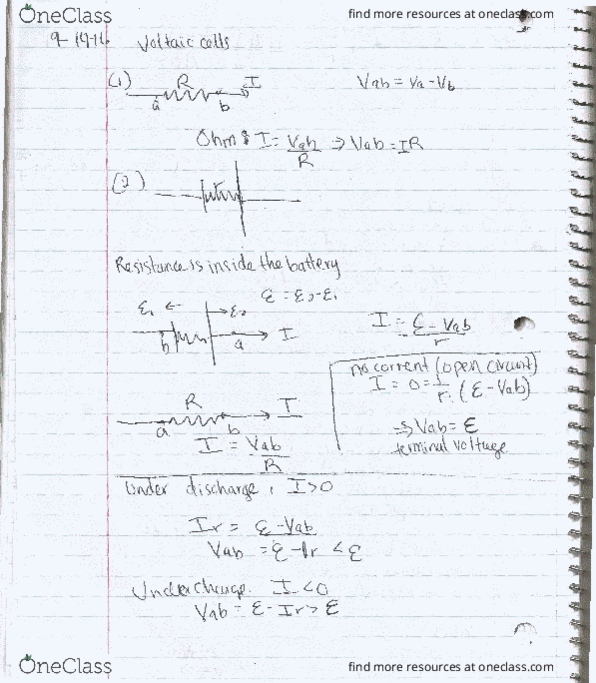 OneClass
find more resources at oneclass.com
9-19-16 Voltaic cells
(1) R I Vab = Va - Vb
a b
Ohm's I = Vab/R ⇒ Vab = IR
(2)
Resistance is inside the battery
ε₁ ← → ε₂ ε = ε₂-ε₁
b a I
I = ε - Vab / r
no current (open circuit)
I = 0 = 1/r (ε - Vab)
⇒ Vab = ε
terminal voltage
R I
a b
I = Vab/R
Under discharge, I>0
Ir = ε - Vab
Vab = ε - Ir < ε
Under charge I<0
Vab = ε - Ir > ε
OneClass
find more resources at oneclass.com